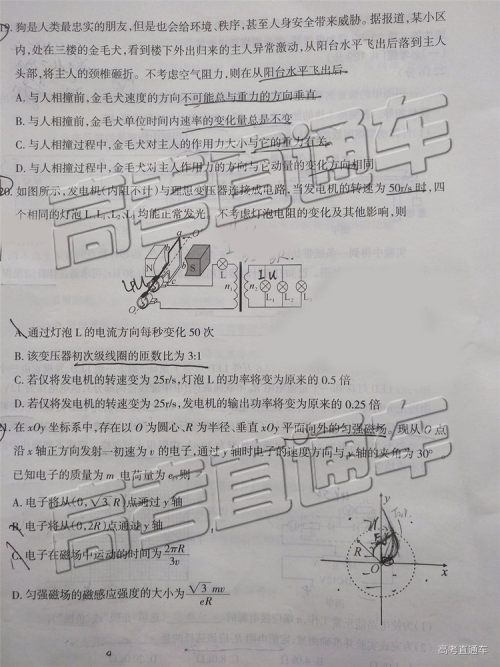 19. 狗是人类最忠实的朋友,但是也会给环境、秩序,甚至人身安全带来威胁。据报道,某小区
内,处在三楼的金毛犬,看到楼下外出归来的主人异常激动,从阳台水平飞出后落到主人
头部,将主人的颈椎砸折。不考虑空气阻力,则在从阳台水平飞出后
A. 与人相撞前,金毛犬速度的方向不可能总与重力的方向垂直
B. 与人相撞前,金毛犬单位时间内速率的变化量总是不变
C. 与人相撞过程中,金毛犬对主人的作用力大小与它的重力有关
D. 与人相撞过程中,金毛犬对主人作用力的方向与它动量的变化方向相同
20. 如图所示,发电机(内阻不计)与理想变压器连接成电路,当发电机的转速为 50r/s 时,四
个相同的灯泡 L、L₁、L₂、L₃ 均能正常发光。不考虑灯泡电阻的变化及其他影响,则
N
S
a
b
c
O
L
n₁
n₂
I u
L₁
L₂
L₃
A. 通过灯泡 L 的电流方向每秒变化 50 次
B. 该变压器初次级线圈的匝数比为 3:1
C. 若仅将发电机的转速变为 25r/s,灯泡 L 的功率将变为原来的 0.5 倍
D. 若仅将发电机的转速变为 25r/s,发电机的输出功率将变为原来的 0.25 倍
21. 在 xOy 坐标系中,存在以 O 为圆心、R 为半径、垂直 xOy 平面向外的匀强磁场。现从 O 点
沿 x 轴正方向发射一初速为 v 的电子,通过 y 轴时电子的速度方向与 y 轴的夹角为 30°
已知电子的质量为 m 电荷量为 e,则
A. 电子将从(0,√3 R)点通过 y 轴
B. 电子将从(0,2R)点通过 y 轴
C. 电子在磁场中运动的时间为 2πR/3v
D. 匀强磁场的磁感应强度的大小为 √3 mv/eR
y
R
O
x
高考直通车
高考直通车
高考直通车
高考直通车